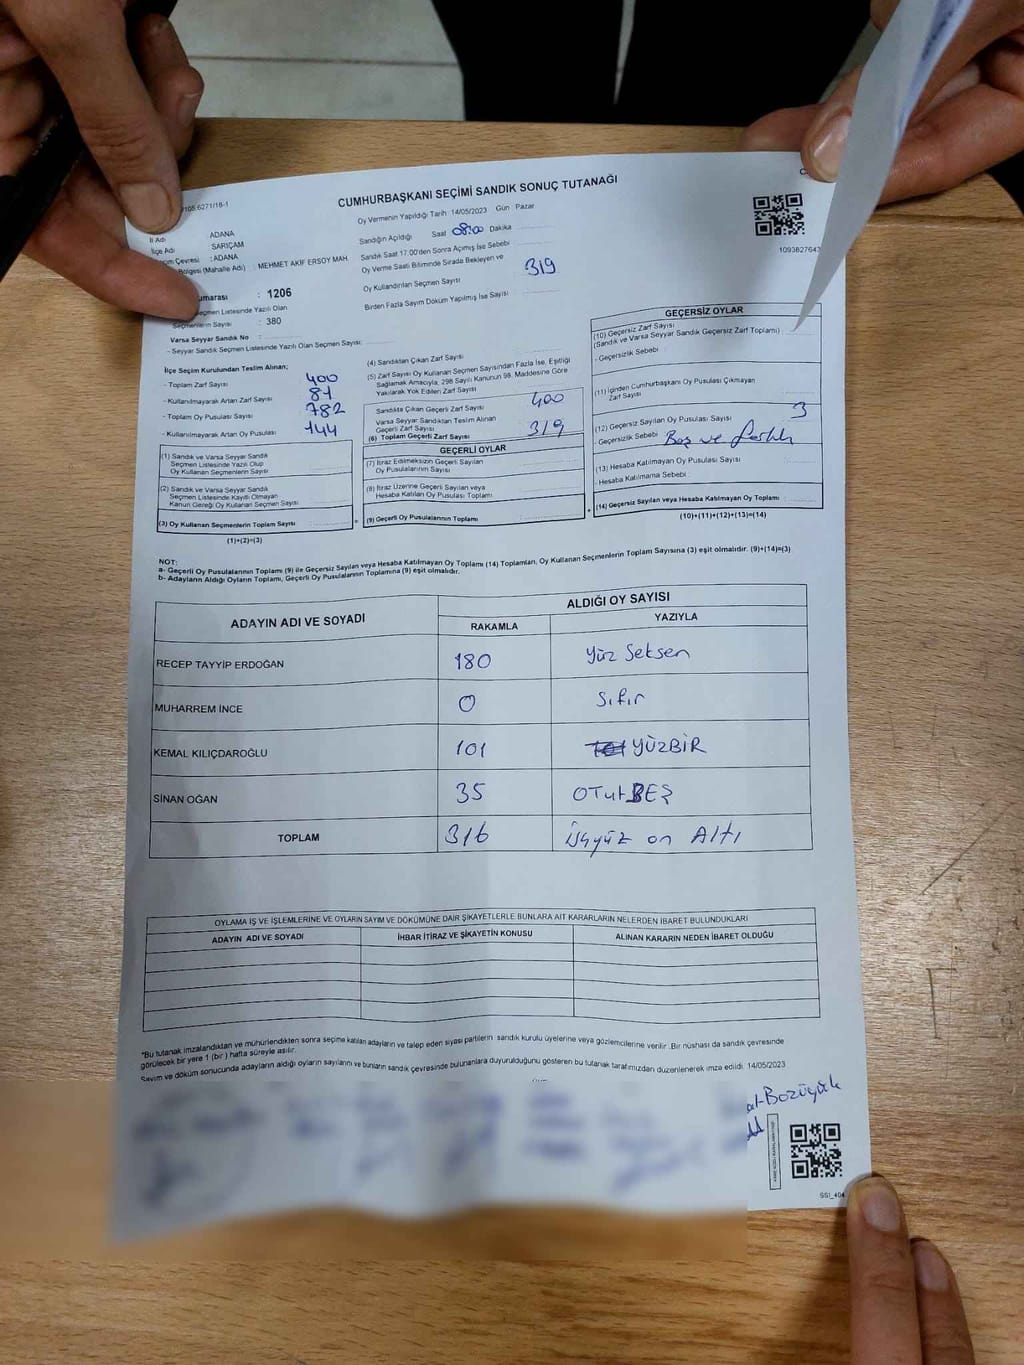 CUMHURBAŞKANI SEÇİMİ SANDIK SONUÇ TUTANAĞI
Oy Vermenin Yapıldığı Tarih 14/05/2023 Gün : Pazar
İl Adı ADANA
İlçe Adı SARIÇAM
Çevresi : ADANA
Bölgesi (Mahalle Adı) : MEHMET AKİF ERSOY MAH.
: 1206
Seçmen Listesinde Yazılı Olan
Seçmenlerin Sayısı : 380
Varsa Seyyar Sandık No :
- Seyyar Sandık Seçmen Listesinde Yazılı Olan Seçmen Sayısı :
Sandığın Açıldığı Saat 08:00 Dakika
Sandık Saat 17.00'den Sonra Açılmış İse Sebebi
Oy Verme Saati Bitiminde Sırada Bekleyen ve
Oy Kullandırılan Seçmen Sayısı 319
Birden Fazla Sayım Döküm Yapılmış İse Sayısı
1093827643
İlçe Seçim Kurulundan Teslim Alınan;
- Toplam Zarf Sayısı 400
- Kullanılmayarak Artan Zarf Sayısı 81
- Toplam Oy Pusulası Sayısı 782
- Kullanılmayarak Artan Oy Pusulası 144
(1) Sandık ve Varsa Seyyar Sandık
Seçmen Listesinde Yazılı Olup
Oy Kullanan Seçmenlerin Sayısı
(2) Sandık ve Varsa Seyyar Sandık
Seçmen Listesinde Kayıtlı Olmayan
Kanun Gereği Oy Kullanan Seçmen Sayısı
(3) Oy Kullanan Seçmenlerin Toplam Sayısı
(1)+(2)=(3)
(4) Sandıktan Çıkan Zarf Sayısı
(5) Zarf Sayısı Oy Kullanan Seçmen Sayısından Fazla İse, Eşitliği
Sağlamak Amacıyla, 298 Sayılı Kanunun 98. Maddesine Göre
Yakılarak Yok Edilen Zarf Sayısı
Sandıkta Çıkan Geçerli Zarf Sayısı 400
Varsa Seyyar Sandıktan Teslim Alınan
Geçerli Zarf Sayısı
(6) Toplam Geçerli Zarf Sayısı 319
GEÇERLİ OYLAR
(7) İtiraz Edilmeksizin Geçerli Sayılan
Oy Pusulalarının Sayısı
(8) İtiraz Üzerine Geçerli Sayılan veya
Hesaba Katılan Oy Pusulası Toplamı
(9) Geçerli Oy Pusulalarının Toplamı
GEÇERSİZ OYLAR
(10) Geçersiz Zarf Sayısı
(Sandık ve Varsa Seyyar Sandık Geçersiz Zarf Toplamı)
- Geçersizlik Sebebi
(11) İçinden Cumhurbaşkanı Oy Pusulası Çıkmayan
Zarf Sayısı
(12) Geçersiz Sayılan Oy Pusulası Sayısı 3
- Geçersizlik Sebebi Boş ve
(13) Hesaba Katılmayan Oy Pusulası Sayısı
- Hesaba Katılmama Sebebi
(14) Geçersiz Sayılan veya Hesaba Katılmayan Oy Toplamı
(10)+(11)+(12)+(13)=(14)
NOT:
a- Geçerli Oy Pusulalarının Toplamı (9) ile Geçersiz Sayılan veya Hesaba Katılmayan Oy Toplamı (14) Toplamları, Oy Kullanan Seçmenlerin Toplam Sayısına (3) eşit olmalıdır. (9)+(14)=(3)
b- Adayların Aldığı Oyların Toplamı, Geçerli Oy Pusulalarının Toplamına (9) eşit olmalıdır.
ADAYIN ADI VE SOYADI ALDIĞI OY SAYISI
RAKAMLA YAZIYLA
RECEP TAYYİP ERDOĞAN 180 Yüz Seksen
MUHARREM İNCE 0 Sıfır
KEMAL KILIÇDAROĞLU 101 YÜZBİR
SİNAN OĞAN 35 OTuzBEŞ
TOPLAM 316 Üçyüz on Altı
OYLAMA İŞ VE İŞLEMLERİNE VE OYLARIN SAYIM VE DÖKÜMÜNE DAİR ŞİKAYETLERLE BUNLARA AİT KARARLARIN NELERDEN İBARET BULUNDUKLARI
ADAYIN ADI VE SOYADI İHBAR İTİRAZ VE ŞİKAYETİN KONUSU ALINAN KARARIN NEDEN İBARET OLDUĞU
*Bu tutanak imzalandıktan ve mühürlendikten sonra seçime katılan adayların ve talep eden siyasi partilerin sandık kurulu üyelerine veya gözlemcilerine verilir. Bir nüshası da sandık çevresinde
görülecek bir yere 1 (bir) hafta süreyle asılır.
Sayım ve döküm sonucunda adayların aldığı oyların sayılarını ve bunların sandık çevresinde bulunanlara duyurulduğunu gösteren bu tutanak tarafımızdan düzenlenerek imza edildi. 14/05/2023
Bozüyük